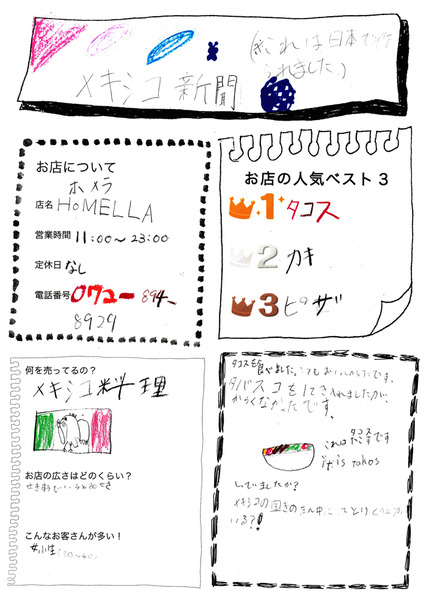 (※これは日本で作
られました。)
メキシコ新聞
お店について
ホメラ
店名 HoMELLA
営業時間 11:00〜23:00
定休日 なし
電話番号 072-894-
8929
お店の人気ベスト3
1 タコス
2 カキ
3 ピザ
何を売ってるの?
メキシコ料理
お店の広さはどのくらい?
こんなお客さんが多い!
女性(30〜40)
タコスを食べました。とてもおいしかったです。
タバスコを1てき入れましたが、
からくなかったです。
これはタコスです
it is takos
しっていましたか?
メキシコの国きのまん中に
いる?!